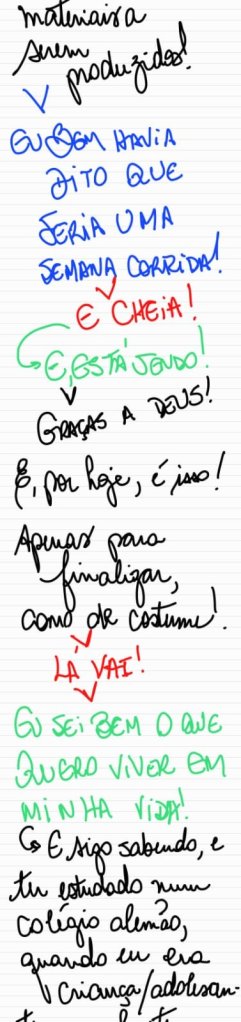 materiais a
serem
produzidos!
EU BEM HAVIA
DITO QUE
SERIA UMA
SEMANA CORRIDA!
E CHEIA!
E, ESTÁ SENDO!
GRAÇAS A DEUS!
E, por hoje, é isso!
Apenas para
finalizar,
como de costume!
LÁ VAI!
EU SEI BEM O QUE
QUERO VIVER EM
MINHA VIDA!
E sigo sabendo, e
ter estudado num
colégio alemão,
quando eu era
criança/adolesan-